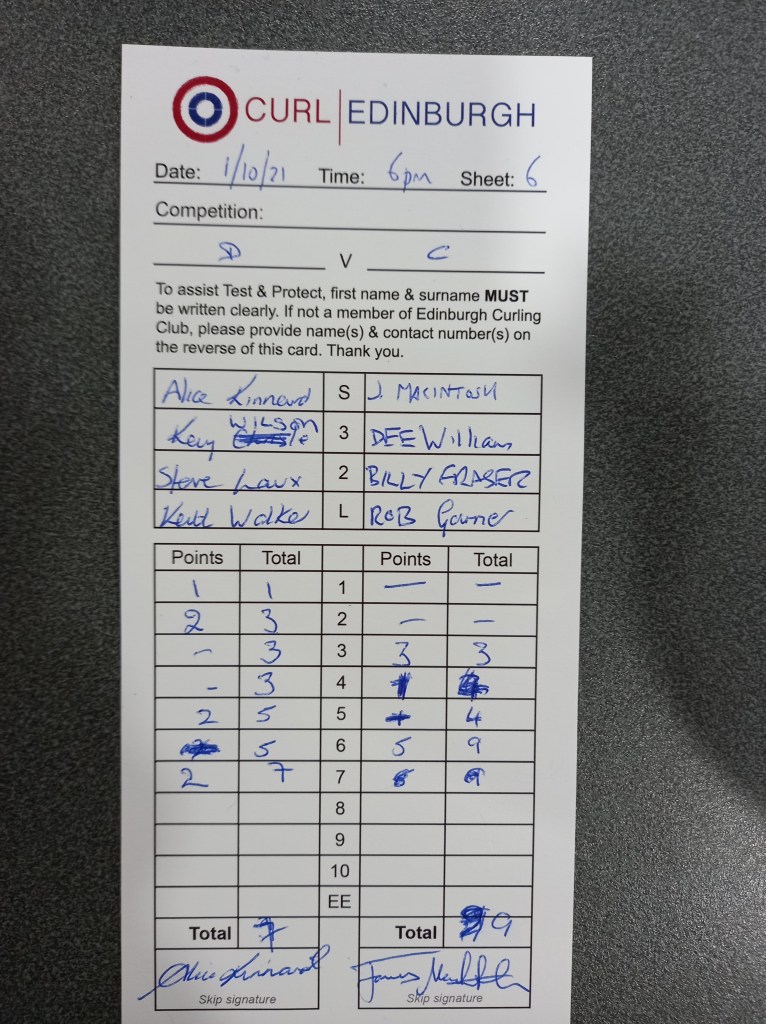 CURL EDINBURGH
Date: 1/10/21 Time: 6pm Sheet: 6
Competition:
D V C
To assist Test & Protect, first name & surname MUST
be written clearly. If not a member of Edinburgh Curling
Club, please provide name(s) & contact number(s) on
the reverse of this card. Thank you.
Alice Kinnard S J. MACINTOSH
WILSON 3 DEE William
Steve 2 BILLY FRASER
L ROB
Points Total Points Total
1 1 1 — —
2 3 2 — —
- 3 3 3 3
- 3 4 1 4
2 5 5 4
5 6 5 9
2 7 7 9
8
9
10
EE
Total 7 Total 9
Alice Kinnard James
Skip signature Skip signature